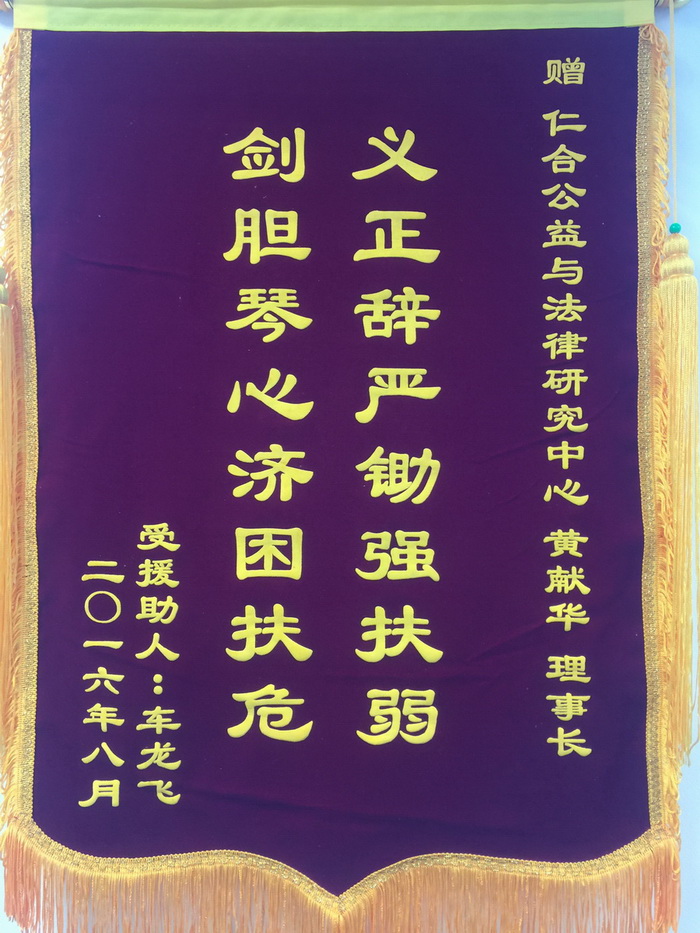 赠 仁合公益与法律研究中心 黄献华 理事长
义正辞严锄强扶弱
剑胆琴心济困扶危
受援助人：车龙飞
二〇一六年八月